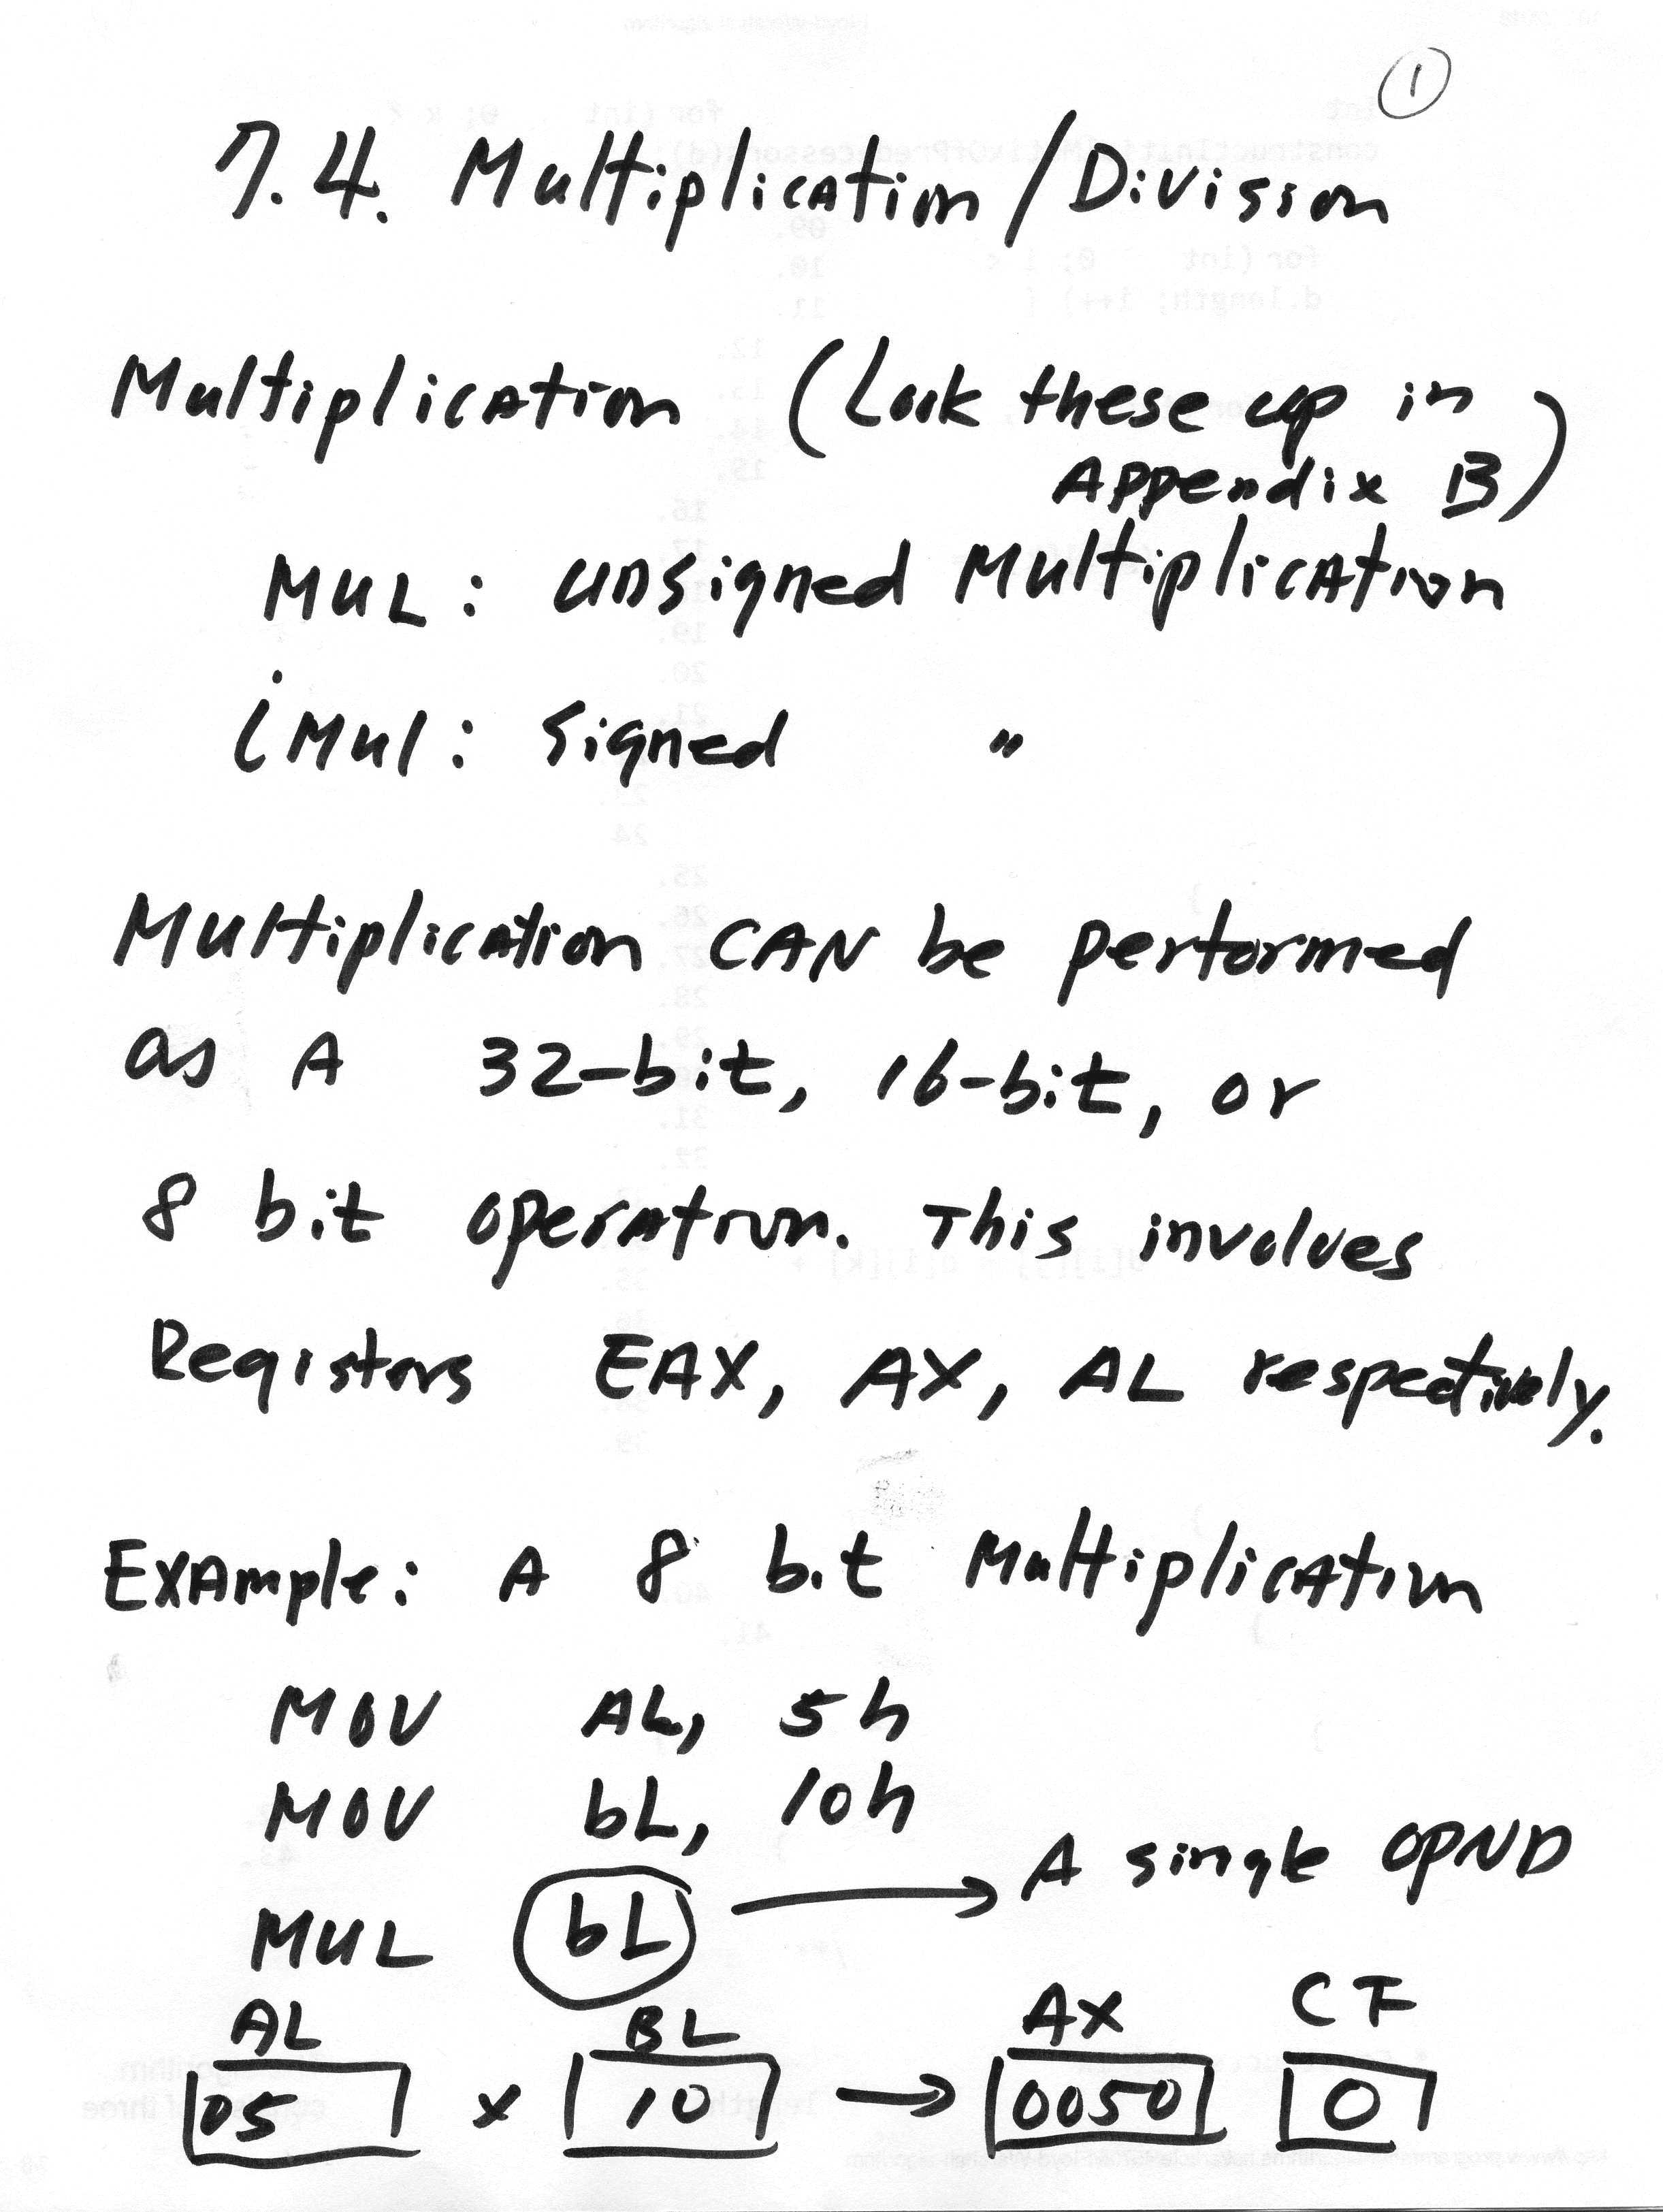 1
7.4. Multiplication/Division
Multiplication (Look these up in
Appendix B)
MUL: unsigned Multiplication
iMul: Signed "
Multiplication CAN be performed
as A 32-bit, 16-bit, or
8 bit operation. This involves
Registers EAX, AX, AL respectively.
Example: A 8 bit Multiplication
MOV AL, 5h
MOV bL, 10h
MUL bL → A single OPND
AL BL AX CF
05 x 10 → 0050 0